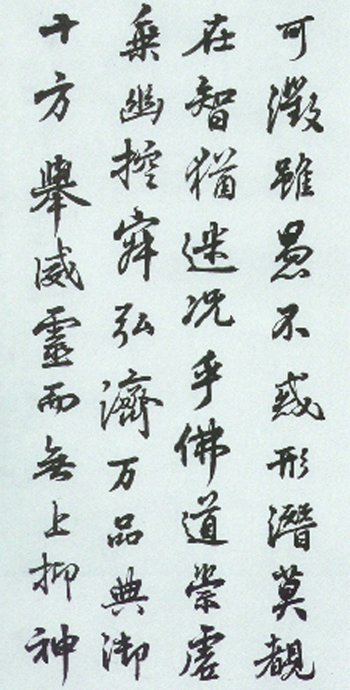 可澂雖愚不惑形潛莫覩
在智猶迷況乎佛道崇虛
乗幽控寂弘濟万品典御
十方舉威靈而無上抑神